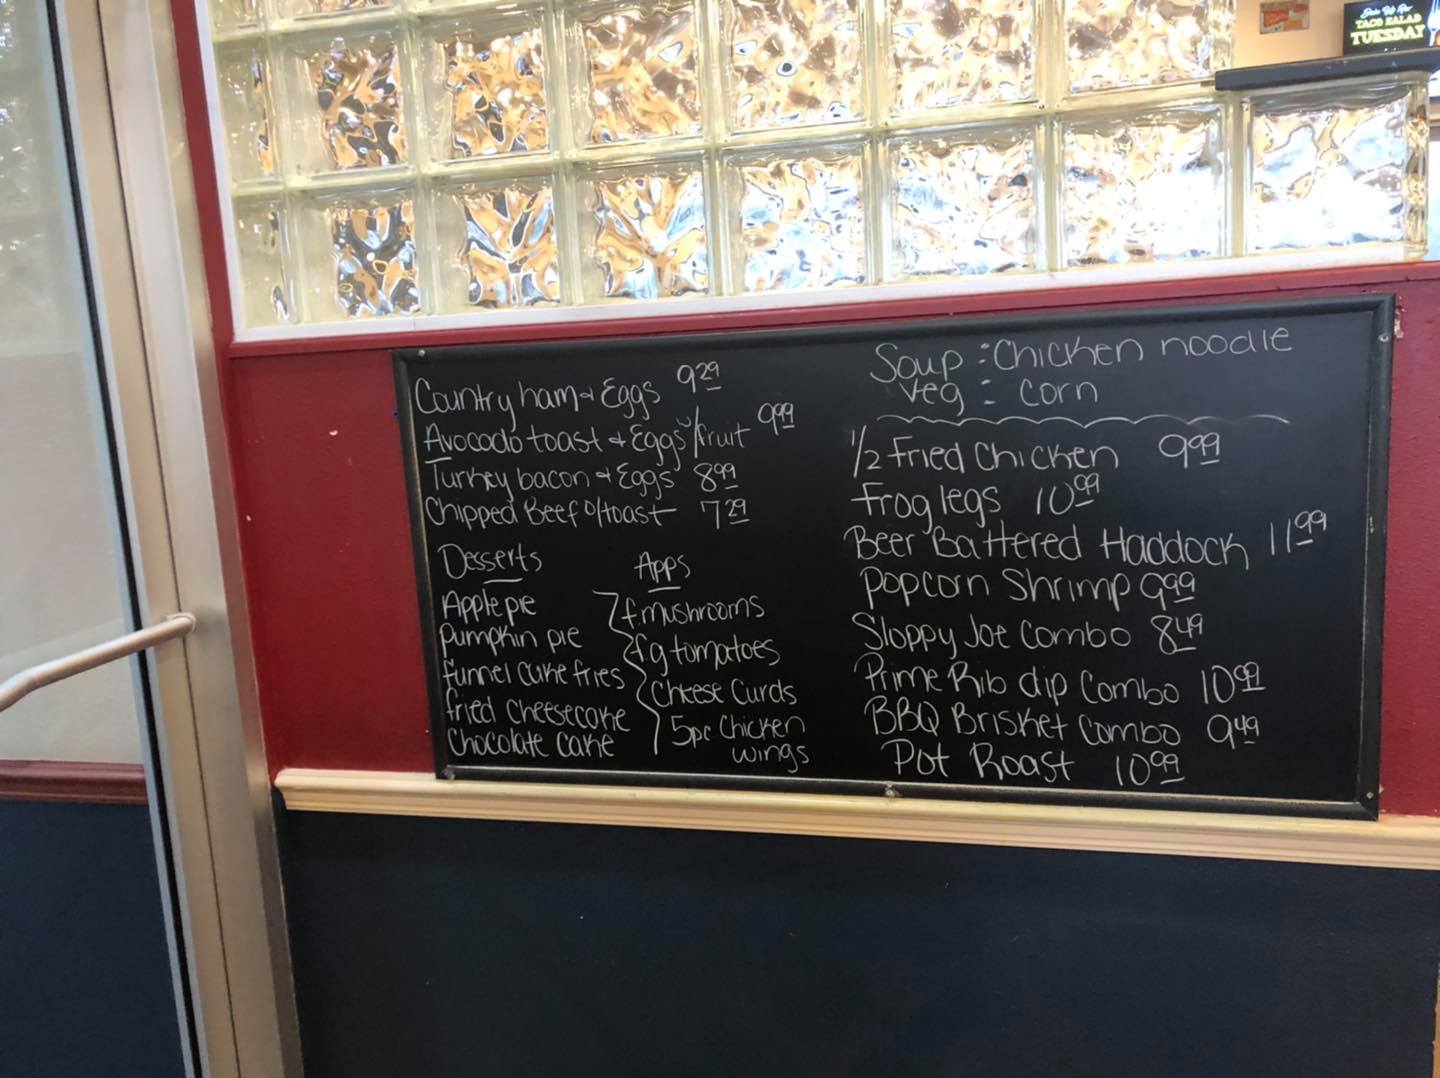 Join Us For
TACO SALAD
TUESDAY
Country ham & Eggs 9.29
Avocado toast & Eggs w/fruit 9.99
Turkey bacon & Eggs 8.99
Chipped Beef o/toast 7.29
Desserts
Apple pie
Pumpkin pie
funnel cake fries
fried cheesecake
Chocolate cake
Apps
f. mushrooms
f.g tomatoes
Cheese Curds
5pc Chicken
wings
Soup : Chicken noodle
Veg : Corn
1/2 Fried Chicken 9.99
Frog legs 10.99
Beer Battered Haddock 11.99
Popcorn Shrimp 9.99
Sloppy Joe Combo 8.49
Prime Rib dip Combo 10.99
BBQ Brisket Combo 9.49
Pot Roast 10.99